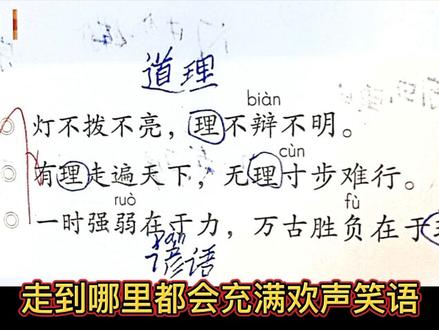 道理
biàn
灯不拨不亮，理不辩不明。
cùn
有理走遍天下，无理寸步难行。
ruò fù
一时强弱在于力，万古胜负在于
谚语
走到哪里都会充满欢声笑语